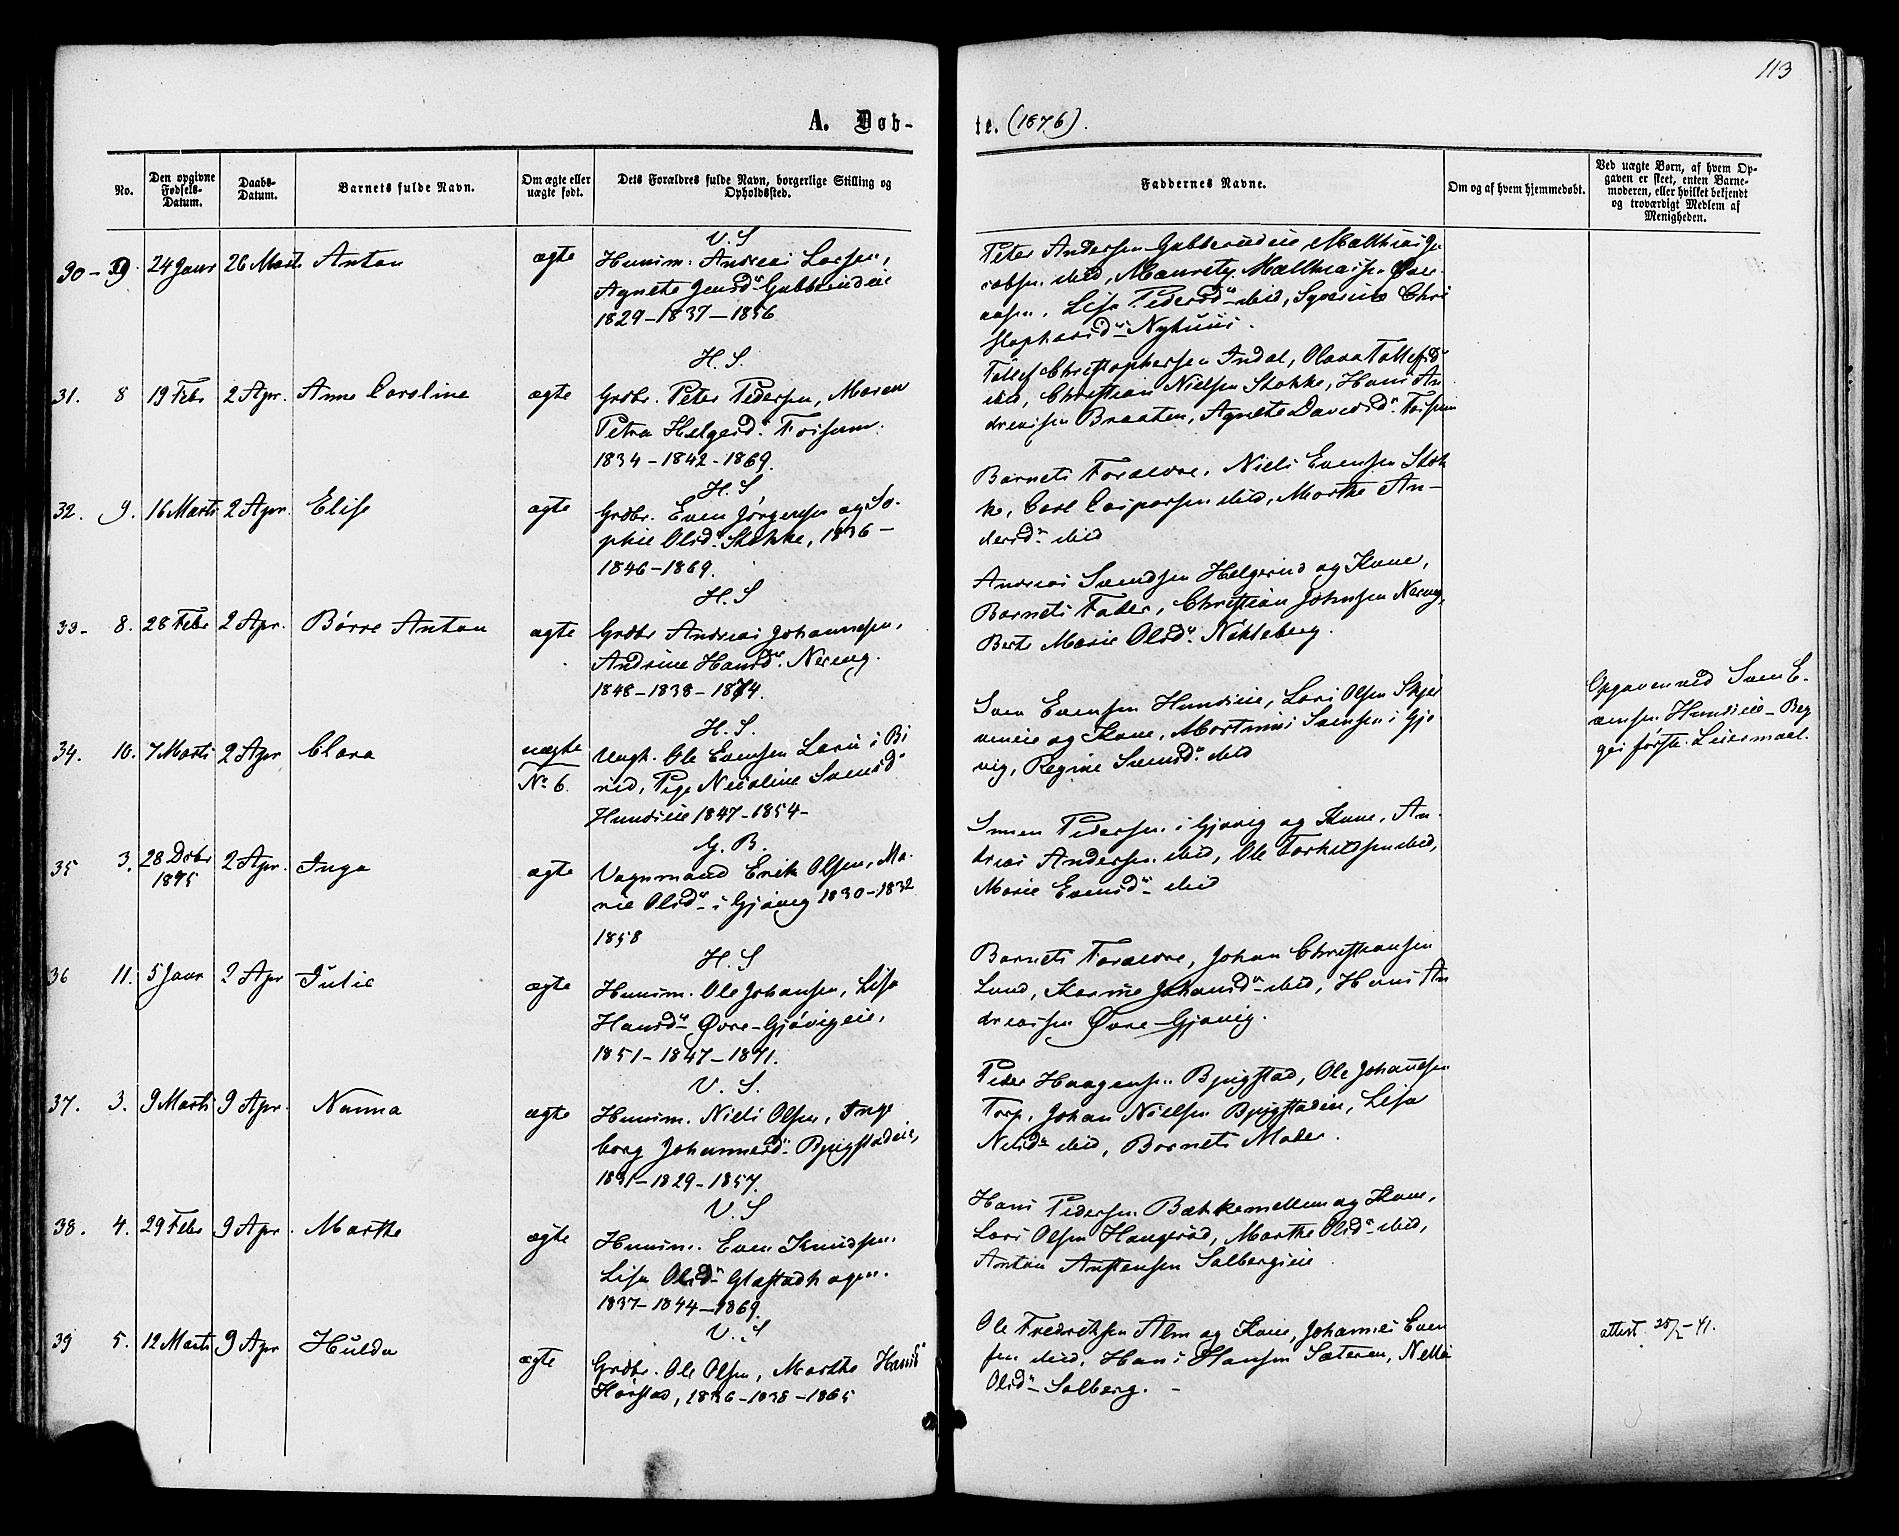 113
A. Døb-
te. (1876).
No.
Den opgivne Fødsels-Datum.
Daabs-Datum.
Barnets fulde Navn.
Om ægte eller uægte født.
Dets Forældres fulde Navn, borgerlige Stilling og Opholdssted.
Faddernes Navne.
Om og af hvem hjemmedøbt.
Ved uægte Børn, af hvem Op-
gaven er skeet, enten Barne-
moderen, eller hvilket bekjendt
og troværdigt Medlem af
Menigheden.
V. S
30 - 24 Janr 26 Marts Anton ægte Huusm. Andreas Larsen,
Agnete Jensd. Gubberudeie
1829 - 1837 - 1856
Peter Andersen Gubberudeie, Matthias Ja-
cobsen ibid, Mauretz Matthias. Øver-
aasen, Lise Pedersd. ibid, Syverine Chri
stophersd. Nyhuus.
H. S.
31. 8 19 Febr 2 Apr. Anne Caroline ægte Grdbr. Peter Pedersen, Maren
Petra Helgesd. Fossum.
1834 - 1842 - 1869.
Tollef Christophersen Indal, Olava Tollefsd.
ibid, Christian Nielsen Stokke, Hans An
dreasen Braaten, Agnete Davidsd. Fossum
H. S
32. 9. 16 Marts 2 Apr. Elise ægte Grdbr. Even Jørgensen og So-
phie Olsd. Stokke, 1836 -
1846 - 1869.
Barnets Forældre, Niels Evensen Stok
ke, Carl Caspersen ibid, Marthe An-
dersd. ibid
H. S
33. 8. 28 Febr 2 Apr. Børre Anton ægte Grdbr Andreas Johannesen,
Andrine Hansd. Nereng.
1848 - 1838 - 1874.
Andreas Svendsen Helgerud og Kone,
Barnets Fader, Christian Johnsen Nereng,
Berte Marie Olsd. Nøkleberg.
H. S.
34. 10. 7 Marts 2 Apr Clara uægte
No 6.
Ungk. Ole Evensen Leru i Bi
rid, Pige Nicoline Svensd.
Hundseie 1847 - 1854 -
Sven Evensen Hundseie, Lars Olsen Skjer
veneie og Kone, Martinus Svensen i Gjø
vig, Regine Svensd. ibid
Opgaven ved Sven E-
vensen Hundseie - Beg
ges første Leiermaal.
G. B.
35 3. 28 Dcbr
1875 2 Apr. Inga ægte Vognmand Erik Olsen, Ma-
rie Olsd. i Gjøvig 1830 - 1832
1858
Simen Pedersen i Gjøvig og Kone, An-
dreas Andersen ibid, Ole Torkeldsen ibid,
Marie Evensd. ibid
H. S
36 11. 5 Janr 2 Apr Julie ægte Huusm. Ole Johansen, Lise
Hansd. Øvre-Gjøvigeie,
1851 - 1847 - 1871.
Barnets Forældre, Johan Christiansen
Lund, Karine Johansd. ibid, Hans An
dreasen Øvre-Gjøvig.
V. S.
37. 3. 9 Marts 9 Apr. Nanna ægte Huusm. Niels Olsen, Inge
borg Johannesd. Bjugstadeie,
1831 - 1829 - 1857.
Peder Haagensen Bjugstad, Ole Johansen
Torp, Johan Nielsen Bjugstadeie, Lise
Nielsd. ibid, Barnets Moder.
V. S
38. 4. 29 Febr 9 Apr. Marthe ægte Huusm. Even Knudsen,
Lise Olsd. Glæstadhagen.
1837 - 1844 - 1869.
Hans Pedersen Bækkemellem og Kone,
Lars Olsen Haugerød, Marthe Olsd. ibid,
Anton Anstensen Solbergseie
V. S
39 5. 12 Marts 9 Apr Hulda ægte Grdbr. Ole Olsen, Marthe Hansd.
Hørstad, 1836 - 1838 - 1865
Ole Fredriksen Alm og Kone, Johannes Even
sen ibid, Hans Hansen Sæteren, Nelle
Olsd. Solberg. -
attest 28/2 - 41.